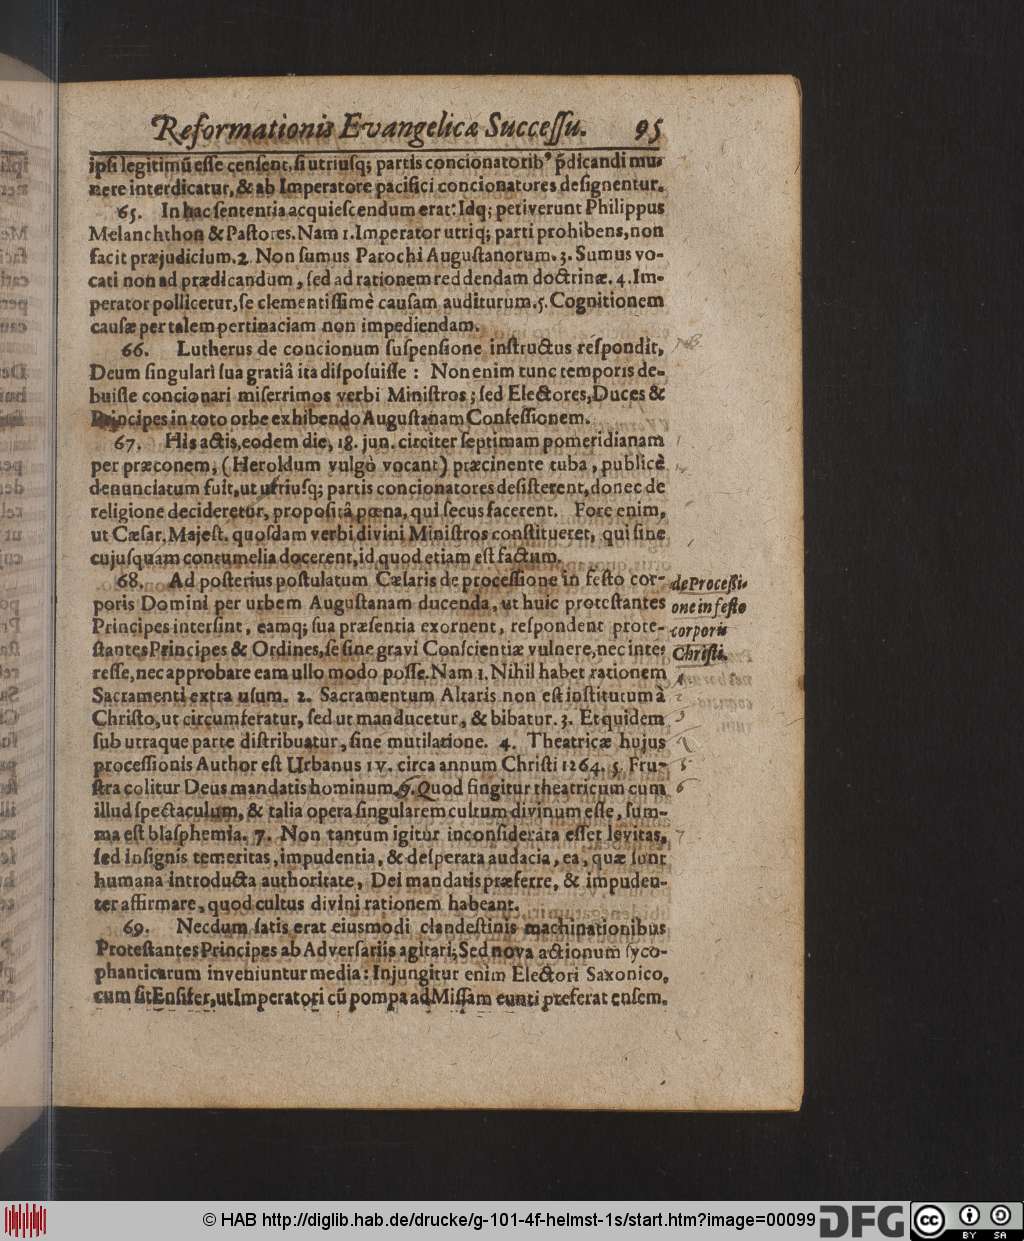 Reformationis Evangelicæ Successu. 95
ipsi legitimū esse censent, si utriusq; partis concionatorib⁹ p̄dicandi mu-
nere interdicatur, & ab Imperatore pacifici concionatores designentur.
65. In hac sententia acquiescendum erat: Idq; petiverunt Philippus
Melanchthon & Pastores. Nam 1. Imperator utriq; parti prohibens, non
facit præjudicium. 2. Non sumus Parochi Augustanorum. 3. Sumus vo-
cati non ad prædicandum, sed ad rationem reddendam doctrinæ. 4. Im-
perator pollicetur, se clementissimè causam auditurum. 5. Cognitionem
causæ per talem pertinaciam non impediendam.
66. Lutherus de concionum suspensione instructus respondit,
Deum singulari sua gratiâ ita disposuisse: Non enim tunc temporis de-
buisse concionari miserrimos verbi Ministros; sed Electores, Duces &
Principes in toto orbe exhibendo Augustanam Confessionem.
67. His actis, eodem die, 18. jun. circiter septimam pomeridianam
per præconem, (Heroldum vulgò vocant) præcinente tuba, publicè
denunciatum fuit, ut utriusq; partis concionatores desisterent, donec de
religione decideretur, propositâ pœna, qui secus facerent. Fore enim,
ut Cæsar. Majest. quosdam verbi divini Ministros constitueret, qui sine
cujusquam contumelia docerent, id quod etiam est factum.
68. Ad posterius postulatum Cæsaris de processione in festo cor-
poris Domini per urbem Augustanam ducenda, ut huic protestantes
Principes intersint, eamq; sua præsentia exornent, respondent prote-
stantes Principes & Ordines, se sine gravi Conscientiæ vulnere, nec inte-
resse, nec approbare eam ullo modo posse. Nam 1. Nihil habet rationem
Sacramenti extra usum. 2. Sacramentum Altaris non est institutum à
Christo, ut circumferatur, sed ut manducetur, & bibatur. 3. Et quidem
sub utraque parte distribuatur, sine mutilatione. 4. Theatricæ hujus
processionis Author est Urbanus IV. circa annum Christi 1264. 5. Fru-
stra colitur Deus mandatis hominum. 6. Quod fingitur theatricum cum
illud spectaculum, & talia opera singularem cultum divinum esse, sum-
ma est blasphemia. 7. Non tantum igitur inconsiderata esset levitas,
sed insignis temeritas, impudentia, & desperata audacia, ea, quæ sunt
humana introducta authoritate, Dei mandatis præferre, & impuden-
ter affirmare, quod cultus divini rationem habeant.
69. Necdum satis erat eiusmodi clandestinis machinationibus
Protestantes Principes ab Adversariis agitari; Sed nova actionum syco-
phanticarum inveniuntur media: Injungitur enim Electori Saxonico,
cum sit Ensifer, ut Imperatori cū pompa ad Missam eunti præferat ensem.
de Processi-
one in festo
corporis
Christi.
© HAB http://diglib.hab.de/drucke/g-101-4f-helmst-1s/start.htm?image=00099
DFG
cc BY SA